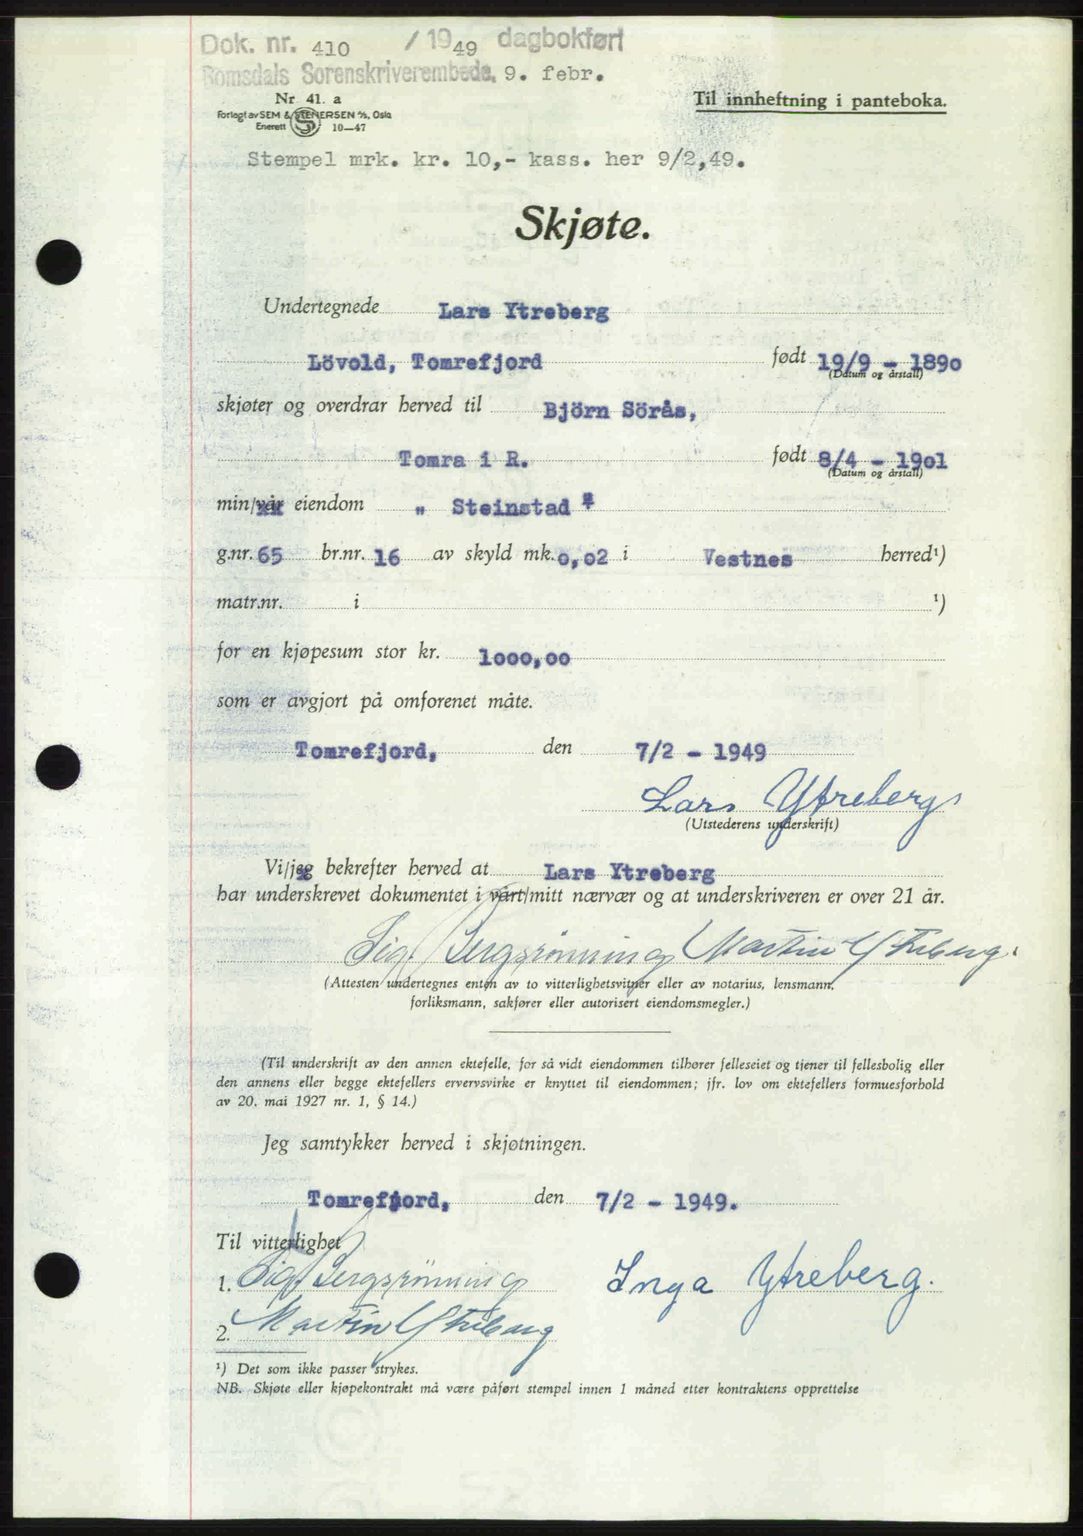 Dok. nr. 410 / 1949 dagbokført
Romsdals Sorenskriverembede, 9. febr.
Nr 41. a
Forlagt av SEM & STENERSEN A/S, Oslo
Enerett S 10—47
Til innheftning i panteboka.
Stempel mrk. kr. 10,- kass. her 9/2,49.
Skjøte.
Undertegnede Lars Ytreberg
Lövold, Tomrefjord født 19/9 - 1890
(Datum og årstall)
skjøter og overdrar herved til Björn Sörås,
Tomra i R. født 8/4 - 1901
(Datum og årstall)
min/vår eiendom " Steinstad "
g.nr. 65 br.nr. 16 av skyld mk. 0,02 i Vestnes herred¹)
matr.nr. i ¹)
for en kjøpesum stor kr. 1000,00
som er avgjort på omforenet måte.
Tomrefjord, den 7/2 - 1949
Lars Ytreberg
(Utstederens underskrift)
Vi/jeg bekrefter herved at Lars Ytreberg
har underskrevet dokumentet i vårt/mitt nærvær og at underskriveren er over 21 år.
Sig. Bergsrönning Martin Ytreberg.
(Attesten undertegnes enten av to vitterlighetsvitner eller av notarius, lensmann,
forliksmann, sakfører eller autorisert eiendomsmegler.)
(Til underskrift av den annen ektefelle, for så vidt eiendommen tilhører felleseiet og tjener til fellesbolig eller
den annens eller begge ektefellers ervervsvirke er knyttet til eiendommen; jfr. lov om ektefellers formuesforhold
av 20. mai 1927 nr. 1, § 14.)
Jeg samtykker herved i skjøtningen.
Tomrefjord, den 7/2 - 1949.
Til vitterlighet
1. Sig. Bergsrönning Inga Ytreberg.
2. Martin Ytreberg
¹) Det som ikke passer strykes.
NB. Skjøte eller kjøpekontrakt må være påført stempel innen 1 måned etter kontraktens opprettelse